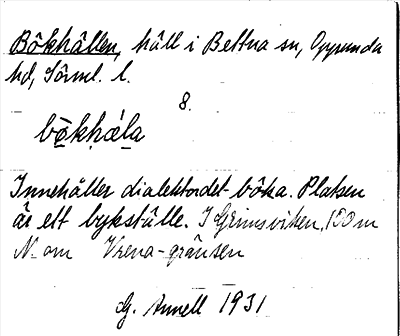 Bökhällen, häll i Bettna sn, Oppunda
hd, Sörml. l.
8.
bö̀khǽla
Innehåller dialektordet böka. Platsen
är ett bykställe. I Grinsviken, 100 m
N. om Vrena-gränsen
G. Annell 1931